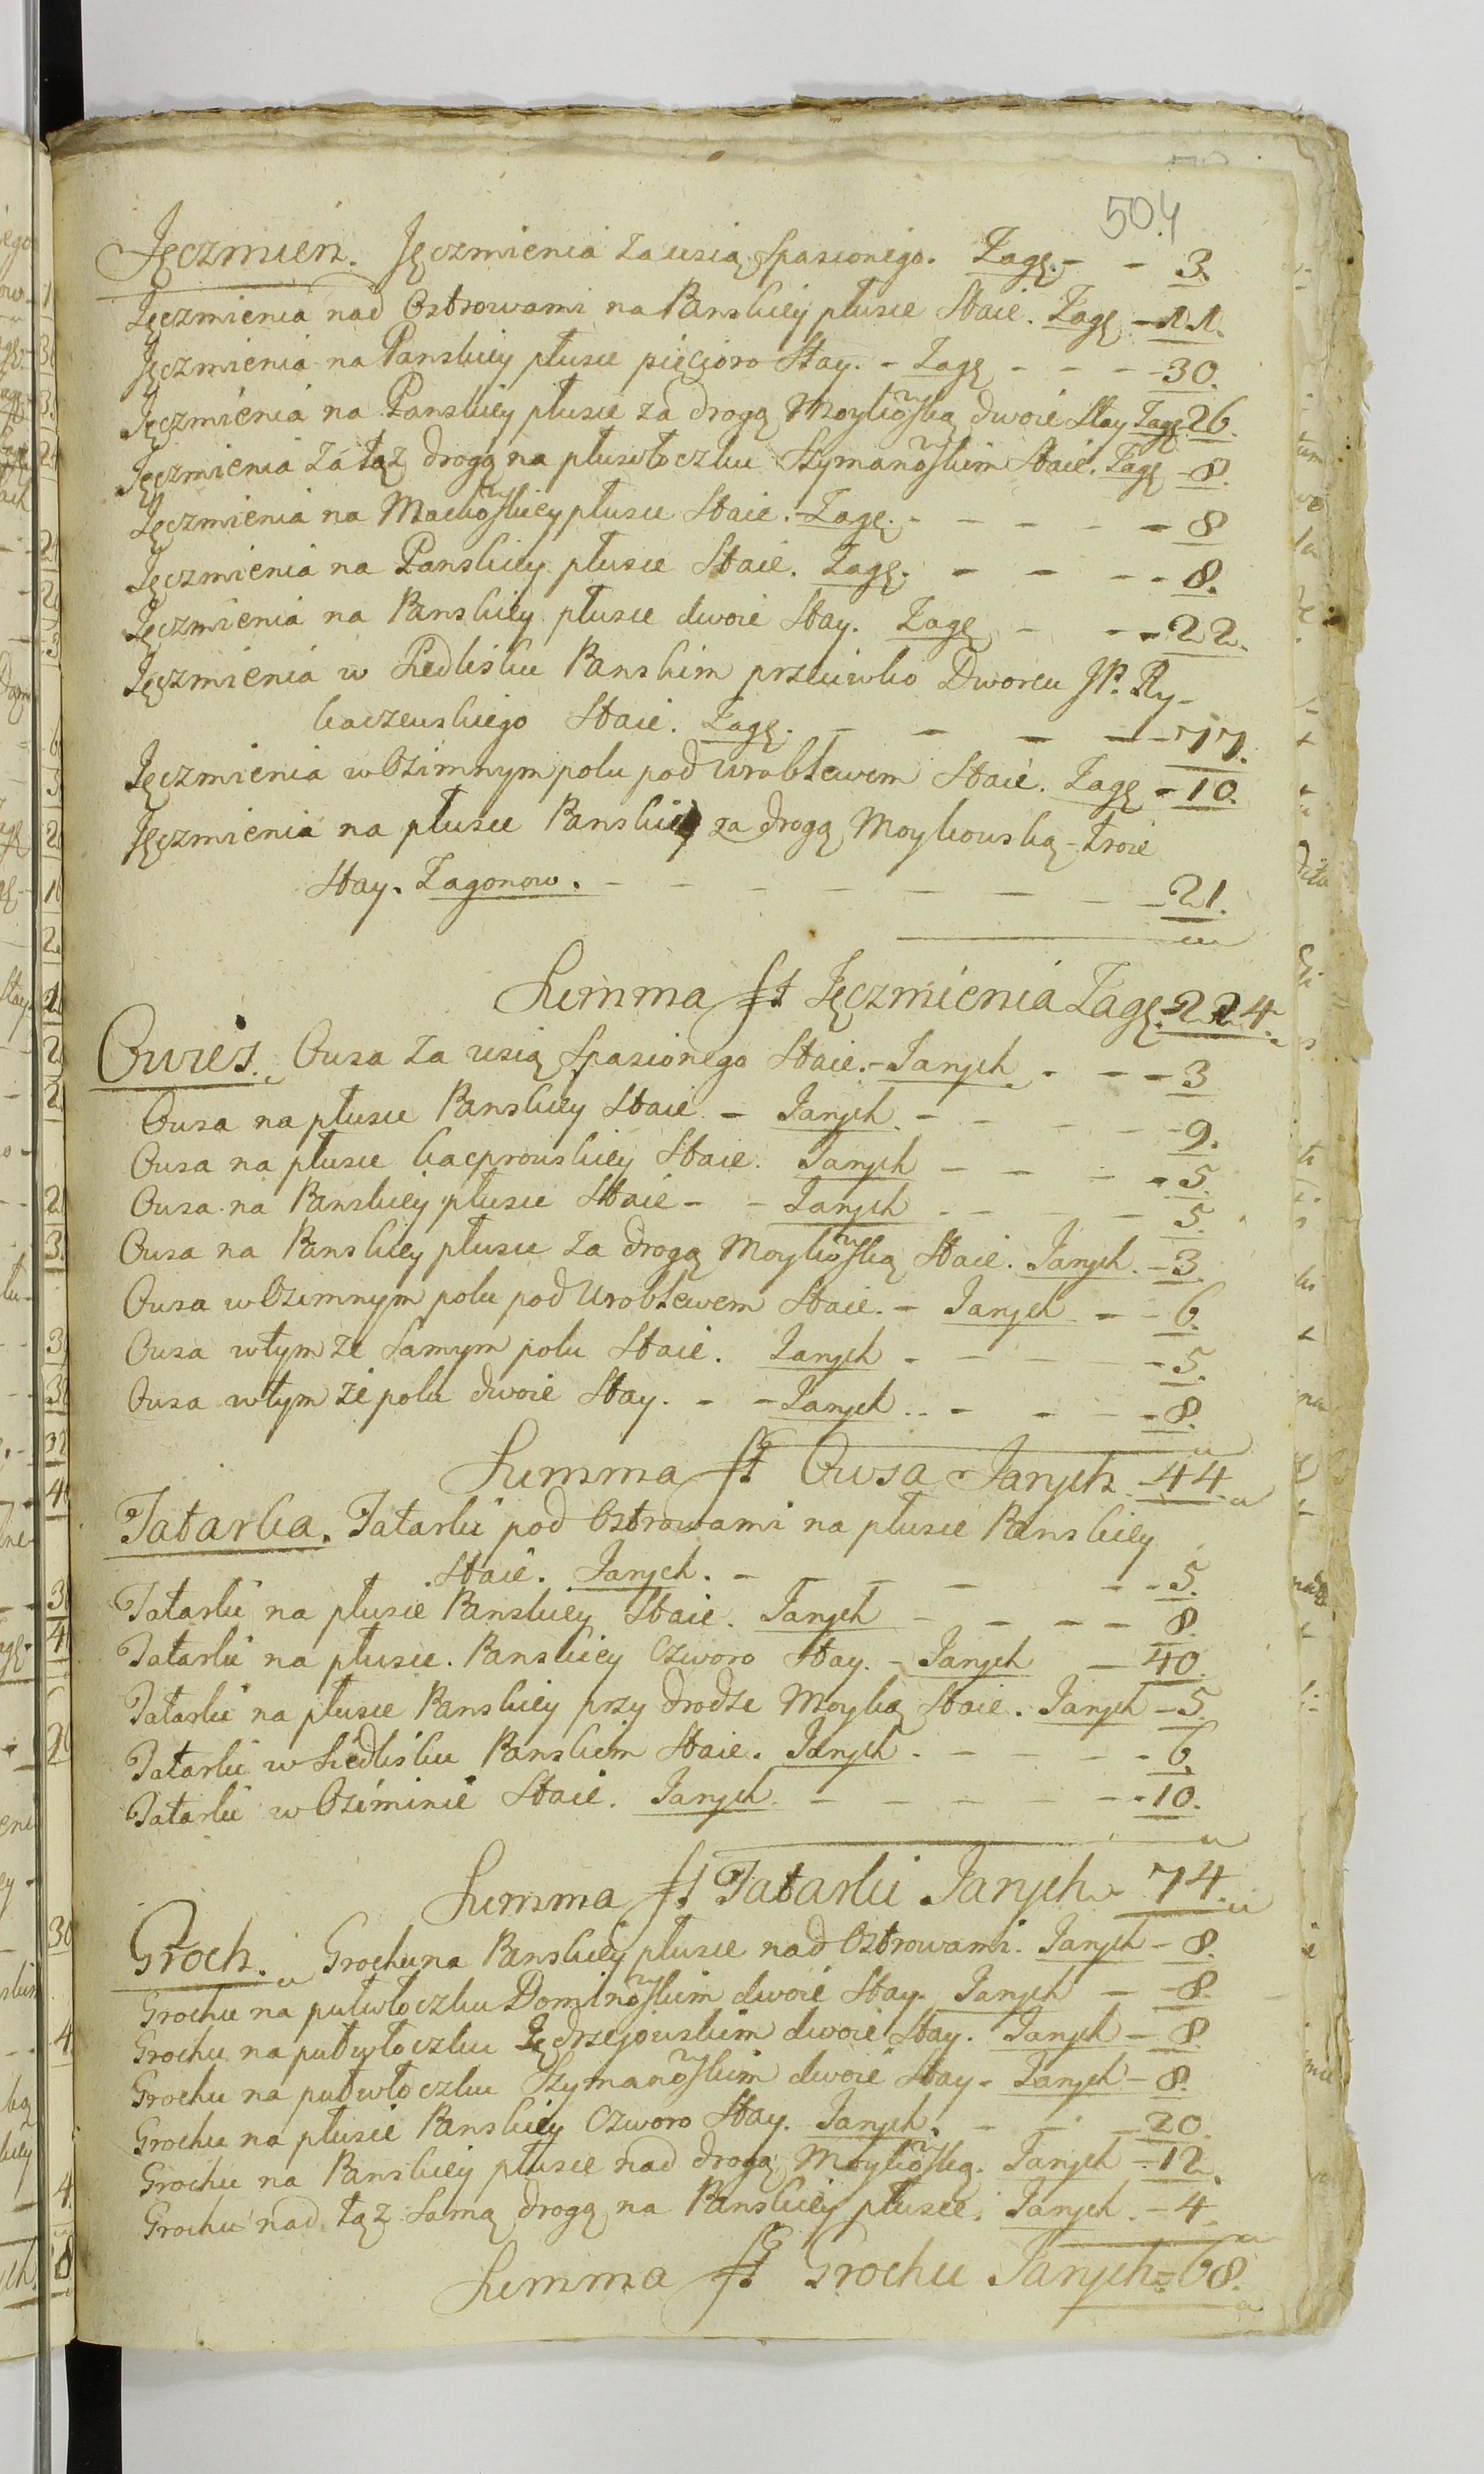 504
Jęczmień. Jęczmienia za wsią Spasionego. Zagę. - - 3.
Jęczmienia nad Ostrowami na Panskiey płusie Staie. Zagę - 11.
Jęczmienia na Panskiey płusie pięcioro Stay. - Zagę - - - 30.
Jęczmienia na Panskiey płusie za drogą Moykowską dwoie Stay Zagę 26.
Jęczmienia za tąz drogą na płuswłoczku Szymanowskim Staie. Zagę - 8.
Jęczmienia na Mackowskiey płusie Staie. - Zagę. - - - - - 8
Jęczmienia na Panskiey płusie Staie. Zagę. - - - - 8.
Jęczmienia na Panskiey płusie dwoie Stay. Zagę - - - 22.
Jęczmienia w Siedlisku Panskim przeciwko Dworcu JP. Ry-
kaczewskiego Staie. Zagę. - - - - - 77.
Jęczmienia w Ozimnym polu pod Wroblewem Staie. Zagę - 10.
Jęczmienia na płusie Panskiey za drogą Moykowską - troie
Stay. Zagonow. - - - - - - - - 21.
Summa Jęczmienia Zagę. 224.
Owies. Owsa za wsią Spasionego Staie. - Janych - - - 3
Owsa na płusie Panskiey Staie - Janych. - - - - - 9.
Owsa na płusie Kacprowskiey Staie. Janych - - - - 5.
Owsa na Panskiey płusie Staie - - Janych - - - - 5.
Owsa na Panskiey płusie za drogą Moykowską Staie. Janych. - 3.
Owsa w Ozimnym polu pod Wroblewem Staie. - Janych - - 6.
Owsa w tym ze samym polu Staie. Janych - - - - 5.
Owsa w tym że polu dwoie Stay. - - Janych. - - - - 8.
Summa Owsa Janych. 44.
Tatarka. Tatarki pod Ostrowami na płusie Panskiey
Staie. Janych. - - - - - - 5.
Tatarki na płusie Panskiey Staie. Janych - - - - 8.
Tatarki na płusie. Panskiey Czworo Stay. - Janych - 40.
Tatarki na płusie Panskiey przy drodze Moyką Staie. Janych - 5.
Tatarki w Siedlisku Panskim Staie. Janych. - - - - 6.
Tatarki w Oziminie Staie. Janych. - - - - - 10.
Summa Tatarki Janych - 74.
Groch. Grochu na Panskiey płusie nad Ostrowami. Janych - 8.
Grochu na putwłoczku Dominowskim dwoie Stay. Janych - - 8.
Grochu na putwłoczku Jędrzejowskim dwoie Stay. Janych - 8.
Grochu na putwłoczku Szymanowskim dwoie Stay - Janych - 8.
Grochu na płusie Panskiey Czworo Stay. Janych. - - - 20.
Grochu na Panskiey płusie nad drogą Moykowską. Janych - 12.
Grochu nad tąz samą drogą na Panskiey płusie. Janych. - 4.
Summa Grochu Janych = 68.